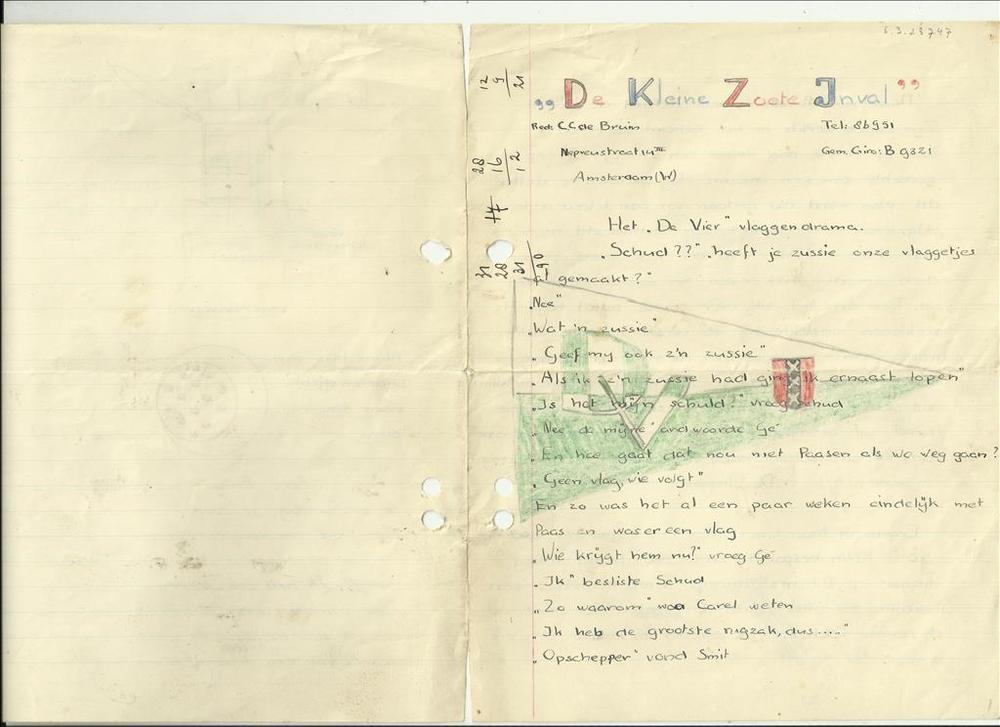 „De Kleine Zoete Inval”
Red: C.C. de Bruin Tel: 86951
14 III Gem. Giro: B 9321
Amsterdam (W)
12
9
21
28
16
12
31
28
31
90
Het „De Vier" vlaggendrama.
„Schud??" „heeft je zussie onze vlaggetjes
al gemaakt?"
„Nee"
„Wat 'n zussie"
„Geef mij ook z'n zussie"
„Als ik z'n zussie had ging ik ernaast lopen"
„Is het mijn schuld?" vroeg Schud
„Nee de mijne" andwoorde Gé
„En hoe gaat dat nou met Paasen als we weg gaan?
„Geen vlag, wie volgt"
En zo was het al een paar weken eindelijk met
Paas en was er een vlag
„Wie krijgt hem nu?" vroeg Gé
„Ik" besliste Schud
„Zo waarom" wou Carel weten
„Ik heb de grootste rugzak, dus....."
„Opschepper" vond Smit
DV